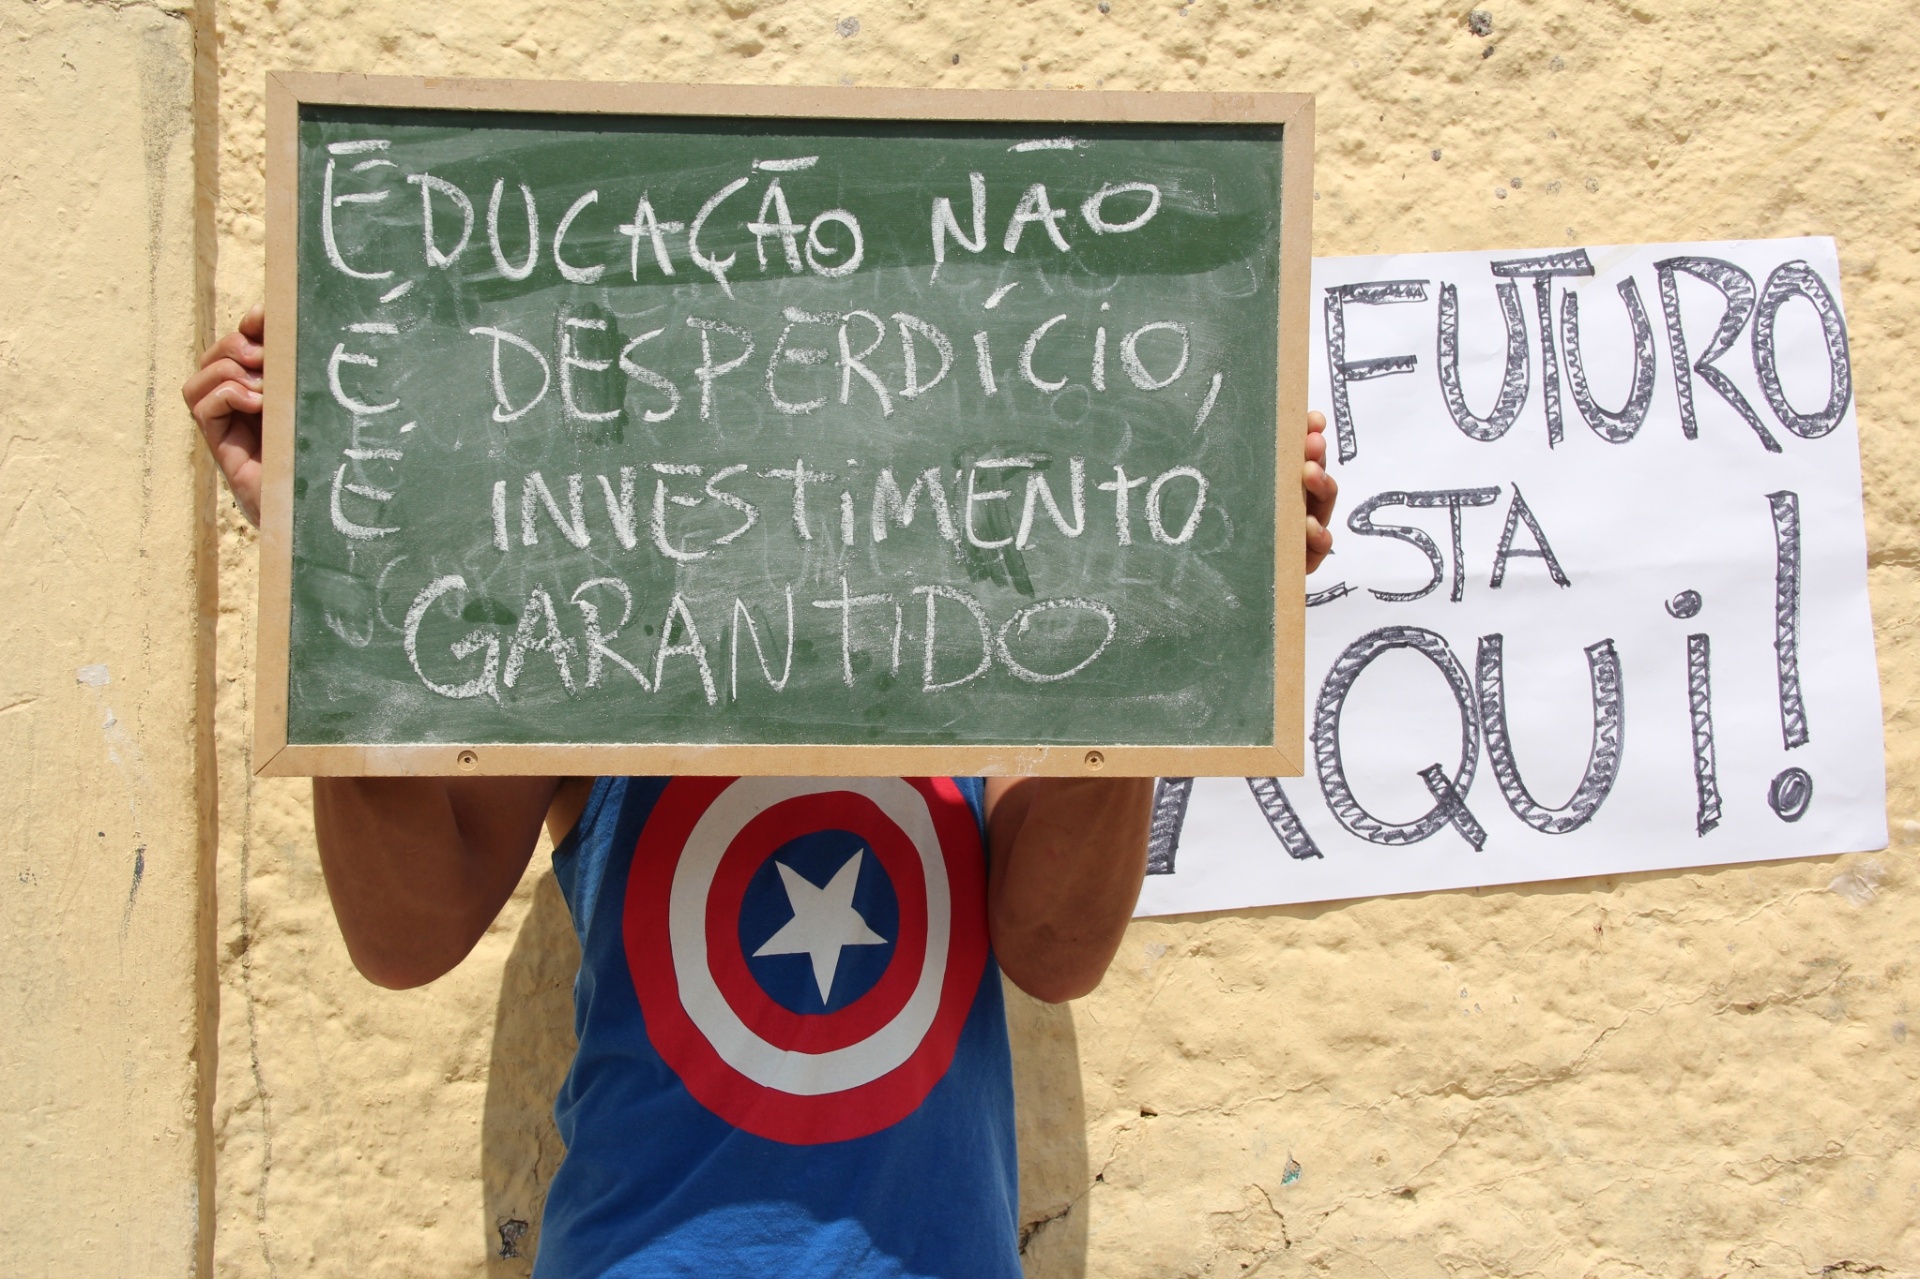 EDUCAÇÃO NÃO
É DESPERDÍCIO,
É INVESTIMENTO
GARANTIDO
FUTURO
ESTA
AQUI!